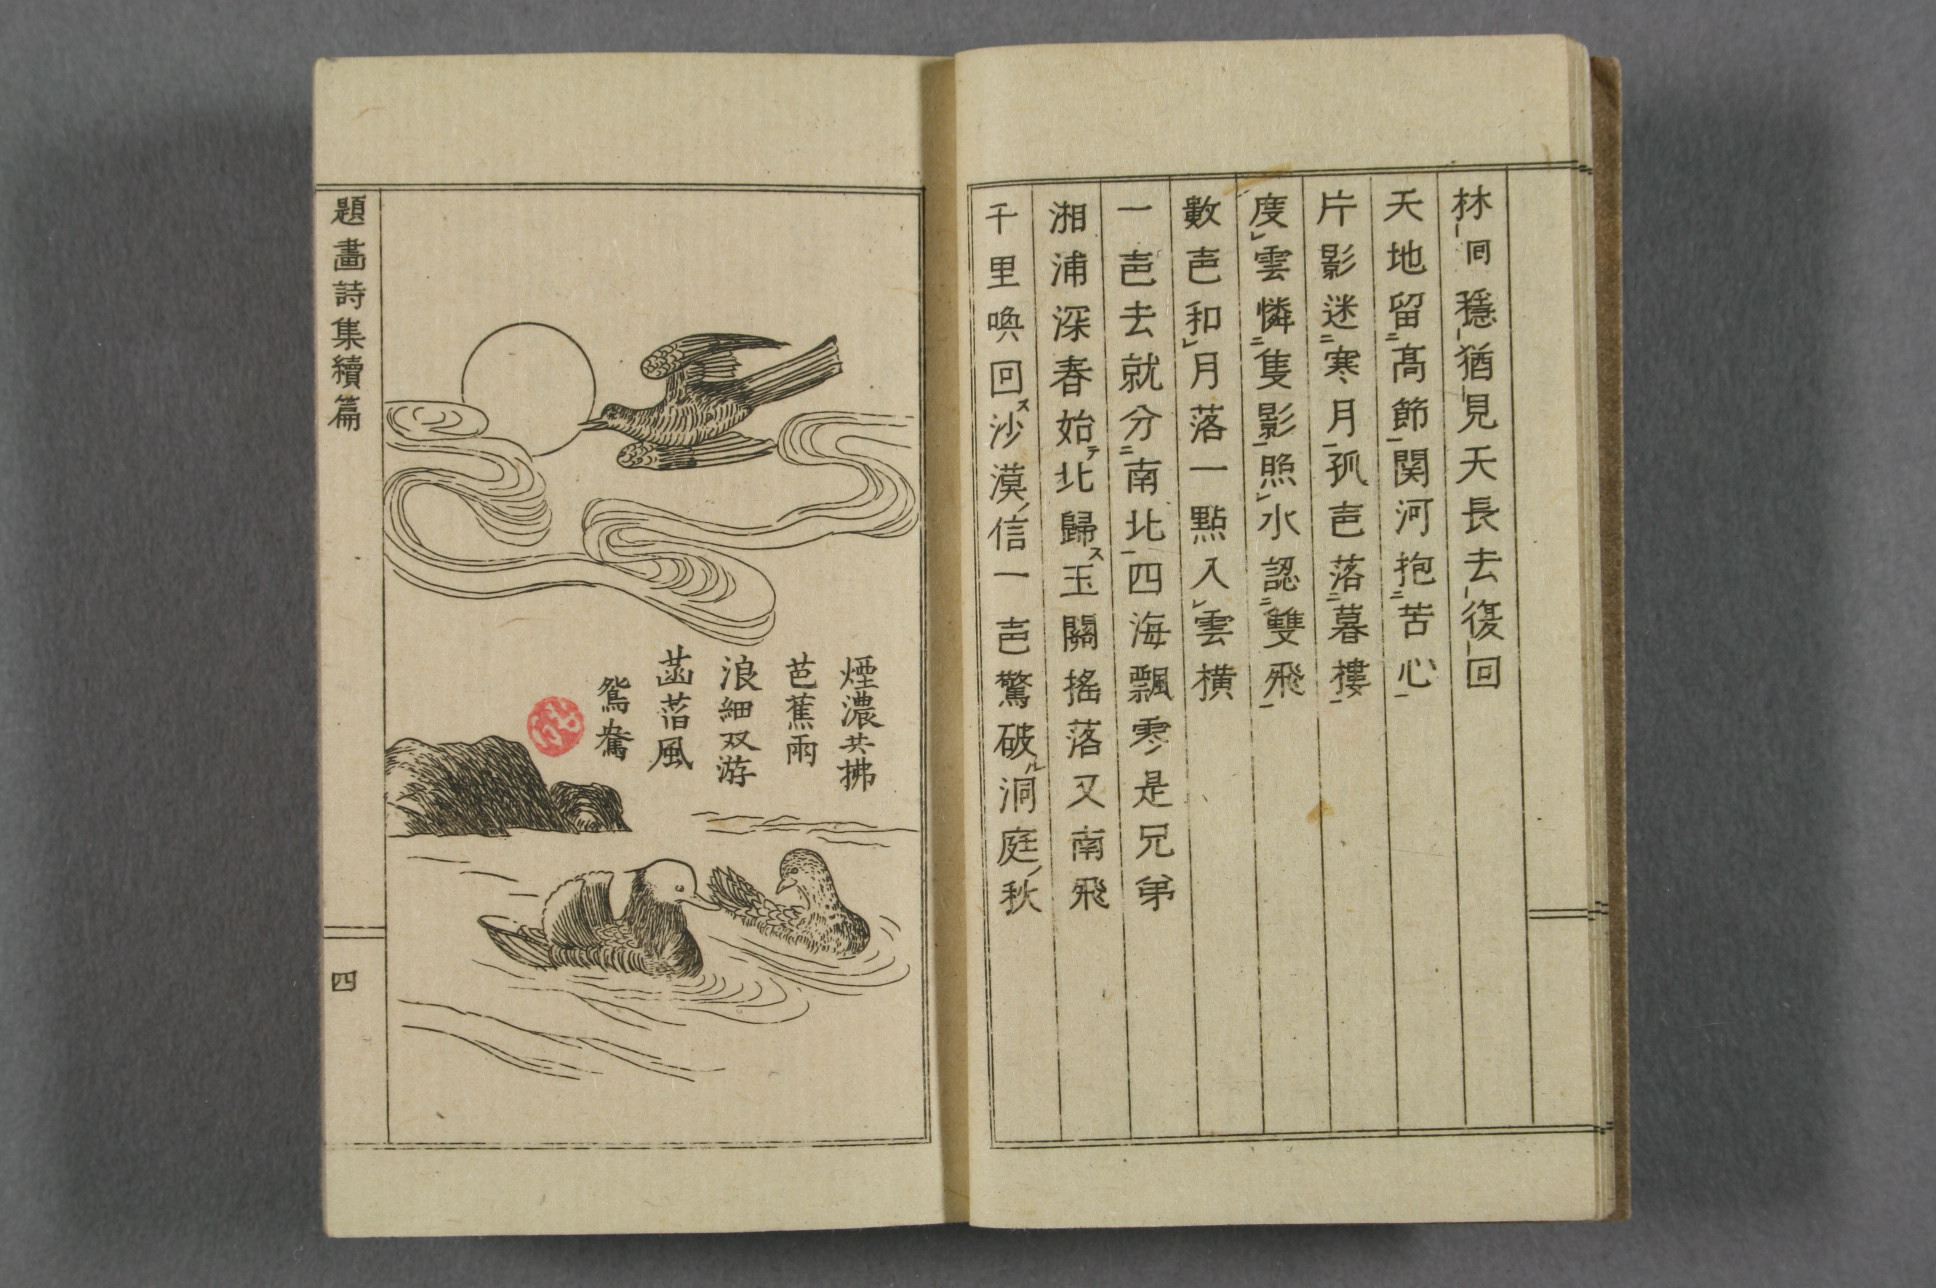 林間穩猶見天長去復回
天地留二高節一関河抱二苦心一
片影迷二寒月一孤声落二暮樓一
度レ雲憐二隻影一照レ水認二雙飛一
數声和レ月落一點入レ雲橫
一声去就分二南北一四海飄零是兄弟
湘浦深春始テ北歸ス玉關搖落又南飛
千里喚回ス沙漠ノ信一声驚破ル洞庭ノ秋
煙濃共拂
芭蕉雨
浪細双游
菡萏風
鴛鴦
題畫詩集續篇
四